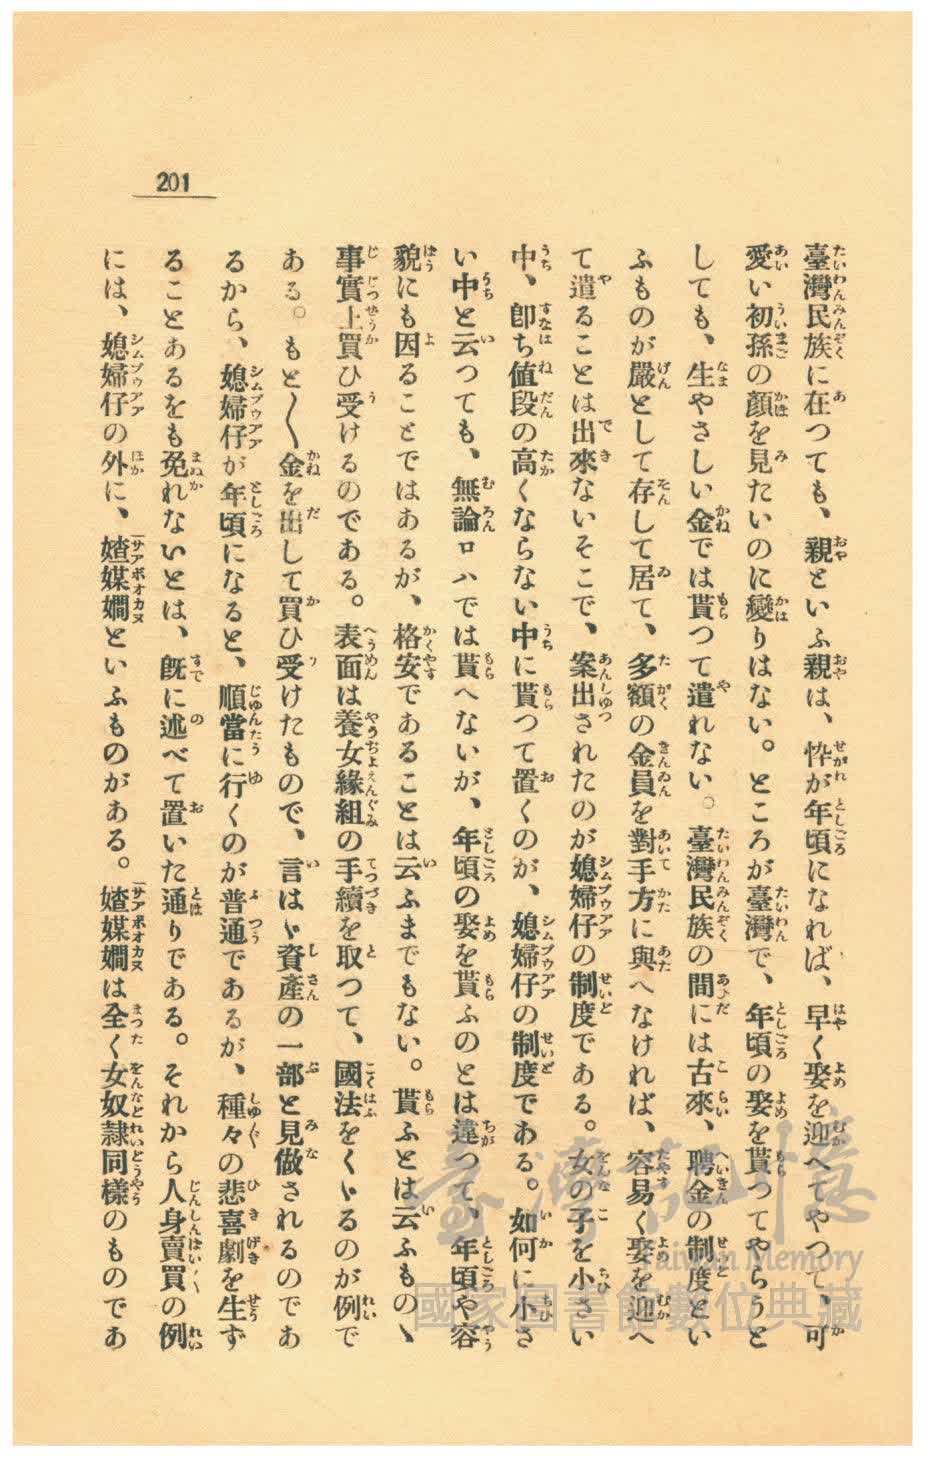 201
臺灣民族に在つても、親といふ親は、忰が年頃になれば、早く娶を迎へてやつて、可
愛い初孫の顔を見たいのに變りはない。ところが臺灣で、年頃の娶を貰つてやらうと
しても、生やさしい金では貰つて遣れない。臺灣民族の間には古來、聘金の制度とい
ふものが嚴として存して居て、多額の金員を對手方に與へなければ、容易く娶を迎へ
て遣ることは出來ないそこで、案出されたのが媳婦仔の制度である。女の子を小さい
中、卽ち値段の高くならない中に貰つて置くのが、媳婦仔の制度である。如何に小さ
い中と云つても、無論ロハでは貰へないが、年頃の娶を貰ふのとは違つて、年頃や容
貌にも因ることではあるが、格安であることは云ふまでもない。貰ふとは云ふものゝ
事實上買ひ受けるのである。表面は養女緣組の手續を取つて、國法をくゝるのが例で
ある。もと〱金を出して買ひ受けたもので、言はゞ資產の一部と見做されるのであ
るから、媳婦仔が年頃になると、順當に行くのが普通であるが、種々の悲喜劇を生ず
ることあるをも免れないとは、旣に述べて置いた通りである。それから人身賣買の例
には、媳婦仔の外に、媎媒嫺といふものがある。媎媒嫺は全く女奴隷同樣のものであ
臺灣記憶
Taiwan Memory
國家圖書館數位典藏